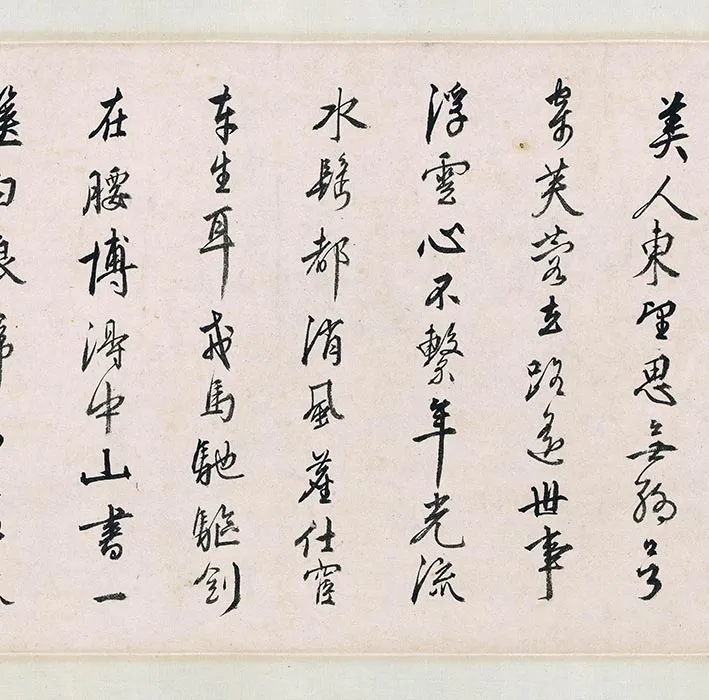 美人東望思無聊
芙蓉去路遙世事
浮雲心不繫年光流
水鬢都消風塵仕宦
車生耳戎馬馳驅劍
在腰博得中山書一
篋